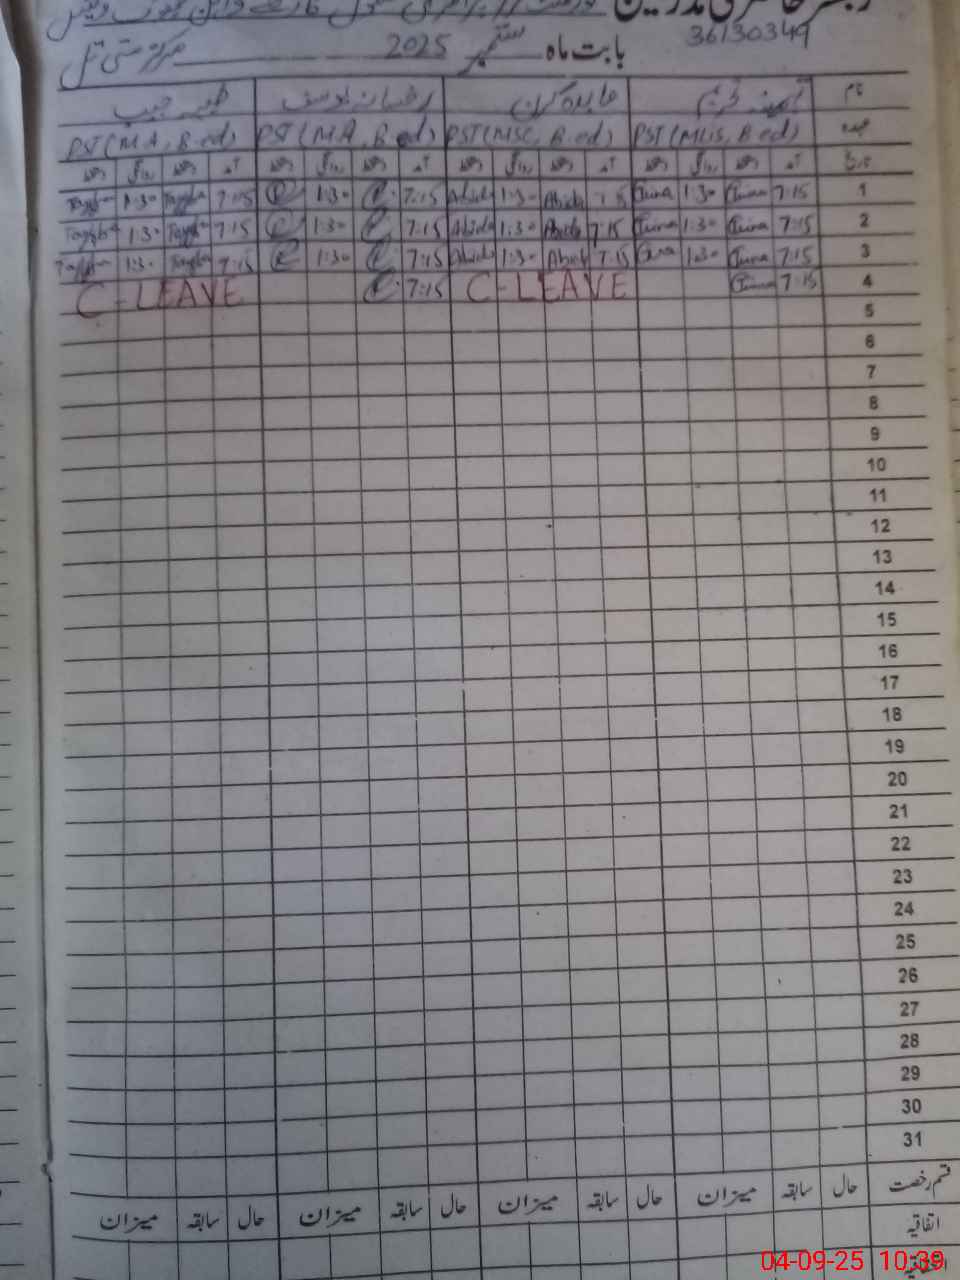 رجسٹر حاضری مدرسین گورنمنٹ گرلز پرائمری سکول
36130349
بابت ماہ ستمبر 2025 مرکز مستی تیل
نام آمینہ عابدہ کرن رخسانہ یوسف طیبہ حبیب
عہدہ PST(MLis, B.ed) PST(MSC, B.ed) PST(M.A, B.ed) PST(M.A, B.ed)
تاریخ آمد دستخط روانگی دستخط آمد دستخط روانگی دستخط آمد دستخط روانگی دستخط آمد دستخط روانگی دستخط
1 7:15 1:30 7:15 Abida 1:30 Abida 7:15 1:30 7:15 Tayyba 1:30 Tayyba
2 7:15 1:30 7:15 Abida 1:30 Abida 7:15 1:30 7:15 Tayyba 1:30 Tayyba
3 7:15 1:30 7:15 Abida 1:30 Abida 7:15 1:30 7:15 Tayyba 1:30 Tayyba
4 7:15 C-LEAVE 7:15 C-LEAVE
5
6
7
8
9
10
11
12
13
14
15
16
17
18
19
20
21
22
23
24
25
26
27
28
29
30
31
قسم رخصت حال سابقہ میزان حال سابقہ میزان حال سابقہ میزان حال سابقہ میزان
اتفاقیہ
04-09-25 10:39